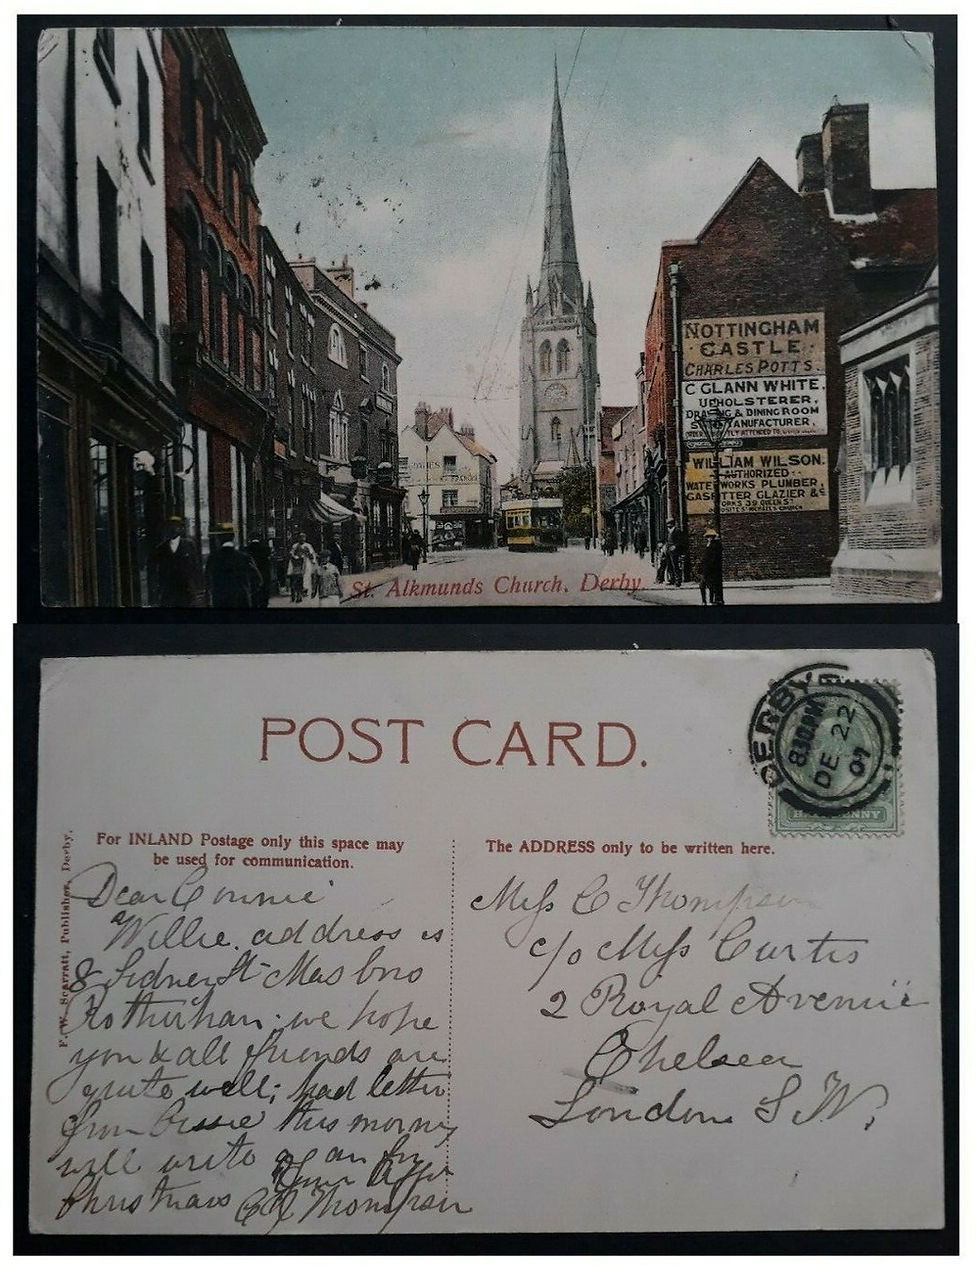 NOTTINGHAM
CASTLE
CHARLES POTTS.
C GLANN WHITE.
UPHOLSTERER,
& DINING ROOM
MANUFACTURER,
WILLIAM WILSON.
AUTHORIZED
WATERWORKS PLUMBER,
GLAZIER &c
St. Alkmunds Church, Derby
POST CARD.
DERBY
8 30 PM
DE 22
07
HALFPENNY
For INLAND Postage only this space may
be used for communication.
The ADDRESS only to be written here.
F. W. Scarratt, Publisher, Derby.
Dear Connie
Willie address is
8 Sidney St Masbro
Rotherham. we hope
you & all friends are
quite well; had letter
from Cissie this morning
will write again
Christmas
Your Aff
Thompson
Miss C Thompson
c/o Miss Curtis
2 Royal Avenue
Chelsea
London S.W.